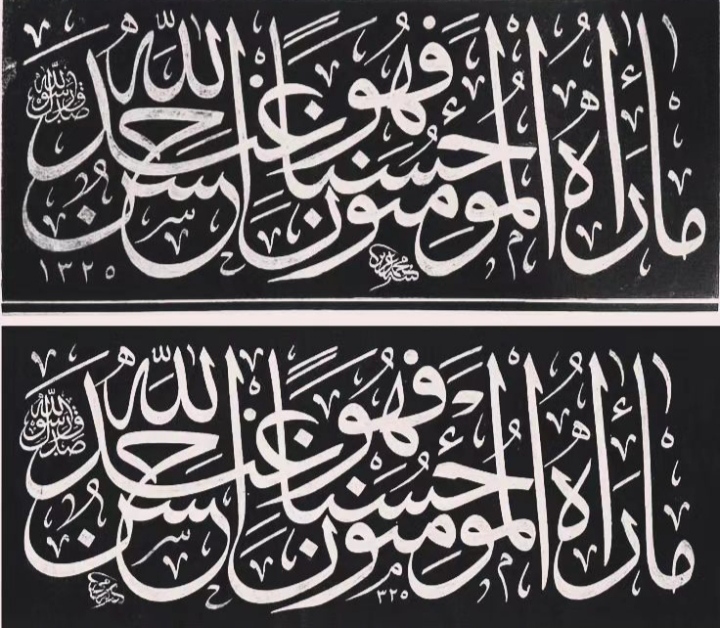 ما رآه المؤمنون حسنا فهو عند الله حسن
صدق رسول الله
١٣٢٥
ما رآه المؤمنون حسنا فهو عند الله حسن
صدق رسول الله
٣٢٥